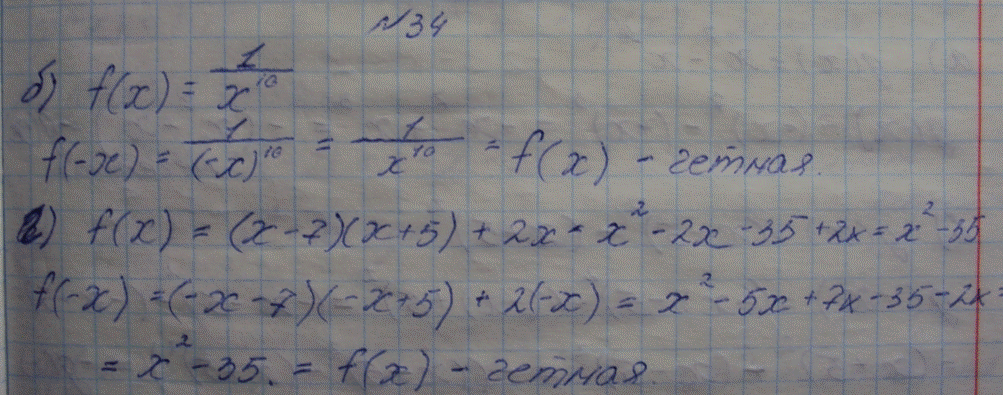 №34
б) f(x) = 1/x¹⁰
f(-x) = 1/(-x)¹⁰ = 1/x¹⁰ = f(x) - четная.
г) f(x) = (x-7)(x+5) + 2x = x² - 2x - 35 + 2x = x² - 35
f(-x) = (-x-7)(-x+5) + 2(-x) = x² - 5x + 7x - 35 - 2x =
= x² - 35. = f(x) - четная.